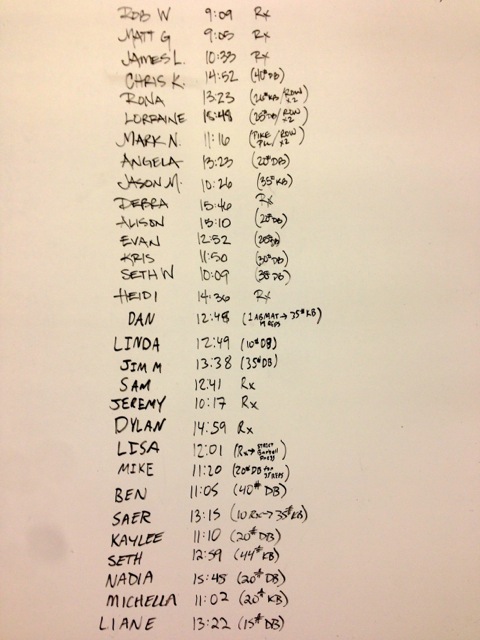 ROB W 9:09 Rx
MATT G 9:05 Rx
JAMES L. 10:33 Rx
CHRIS K. 14:52 (40# DB)
RONA 13:23 (26# KB/ROW x2)
LORRAINE 15:48 (25# DB/ROW x2)
MARK N. 11:16 (PIKE PU/ROW x2)
ANGELA 13:23 (20# DB)
JASON M. 10:26 (35# KB)
DEBRA 15:46 Rx
ALISON 15:10 (20# DB)
EVAN 12:52 DB)
KRIS 11:50 (30# DB)
SETH W 10:09 (35 DB)
HEIDI 14:36 Rx
DAN 12:48 (1 ABMAT → 35# KB)
LINDA 12:49 (10# DB)
JIM M 13:38 (35# DB)
SAM 12:41 Rx
JEREMY 10:17 Rx
DYLAN 14:59 Rx
LISA 12:01 (Rx →
MIKE 11:20 (20# DB
BEN 11:05 (40# DB)
SAER 13:15 (10 Rx → 35# KB)
KAYLEE 11:10 (20# DB)
SETH 12:59 (44# KB)
NADIA 15:45 (20# DB)
MICHELLA 11:02 (20# KB)
LIANE 13:22 (15# DB)